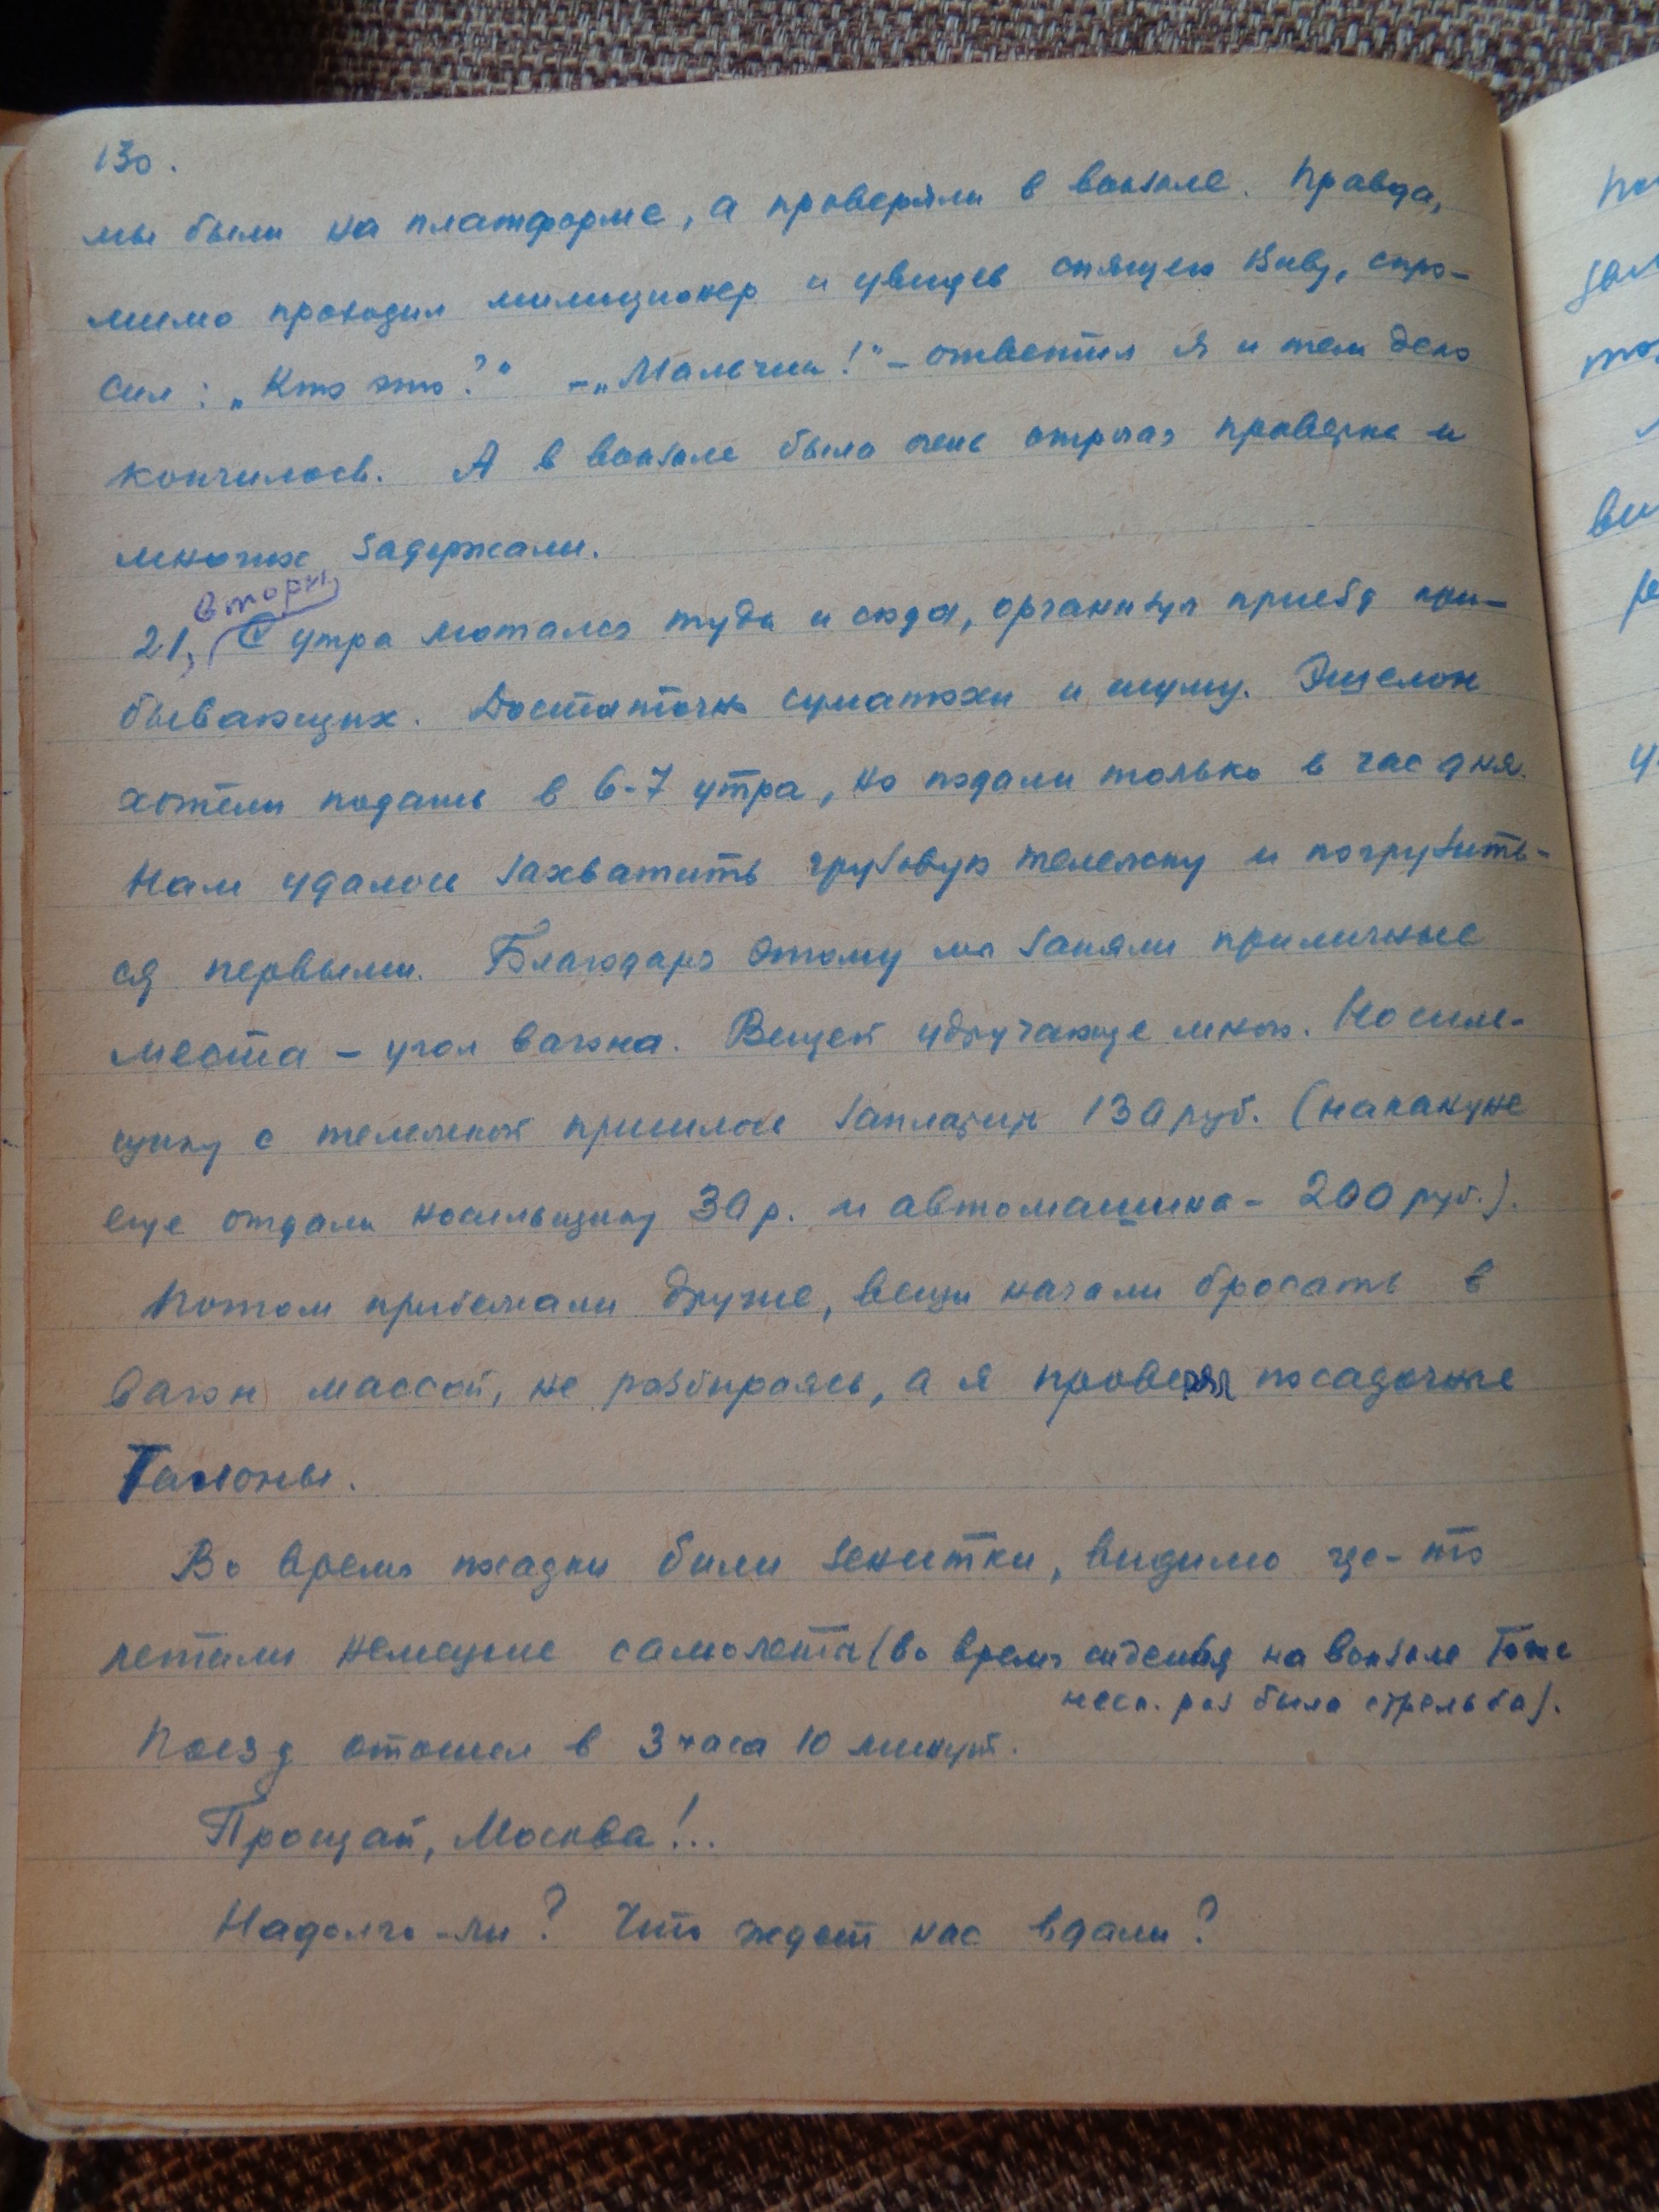 130.
мы были на платформе, а проверяли в вокзале. Правда,
мимо проходил милиционер и увидев спящего Виву, спро-
сил: „Кто это?" – „Мальчик!" – ответил я и тем дело
кончилось. А в вокзале была очень строгая проверка и
многих задержали.
вторн.
21, С утра мотался туда и сюда, организуя приезд при-
бывающих. Достаточно суматохи и шуму. Эшелон
хотели подать в 6-7 утра, но подали только в час дня.
Нам удалось захватить грузовую тележку и погрузить-
ся первыми. Благодаря этому мы заняли приличные
места – угол вагона. Вещей удручающе много. Носиль-
щику с тележкой пришлось заплатить 130 руб. (накануне
еще отдали носильщику 30 р. и автомашина – 200 руб.).
Потом прибежали другие, вещи начали бросать в
вагон массой, не разбираясь, а я проверял посадочные
талоны.
Во время посадки били зенитки, видимо где-то
летали немецкие самолеты (во время сиденья на вокзале тоже
неск. раз была стрельба).
Поезд отошел в 3 часа 10 минут.
Прощай, Москва!..
Надолго-ли? Что ждет нас вдали?